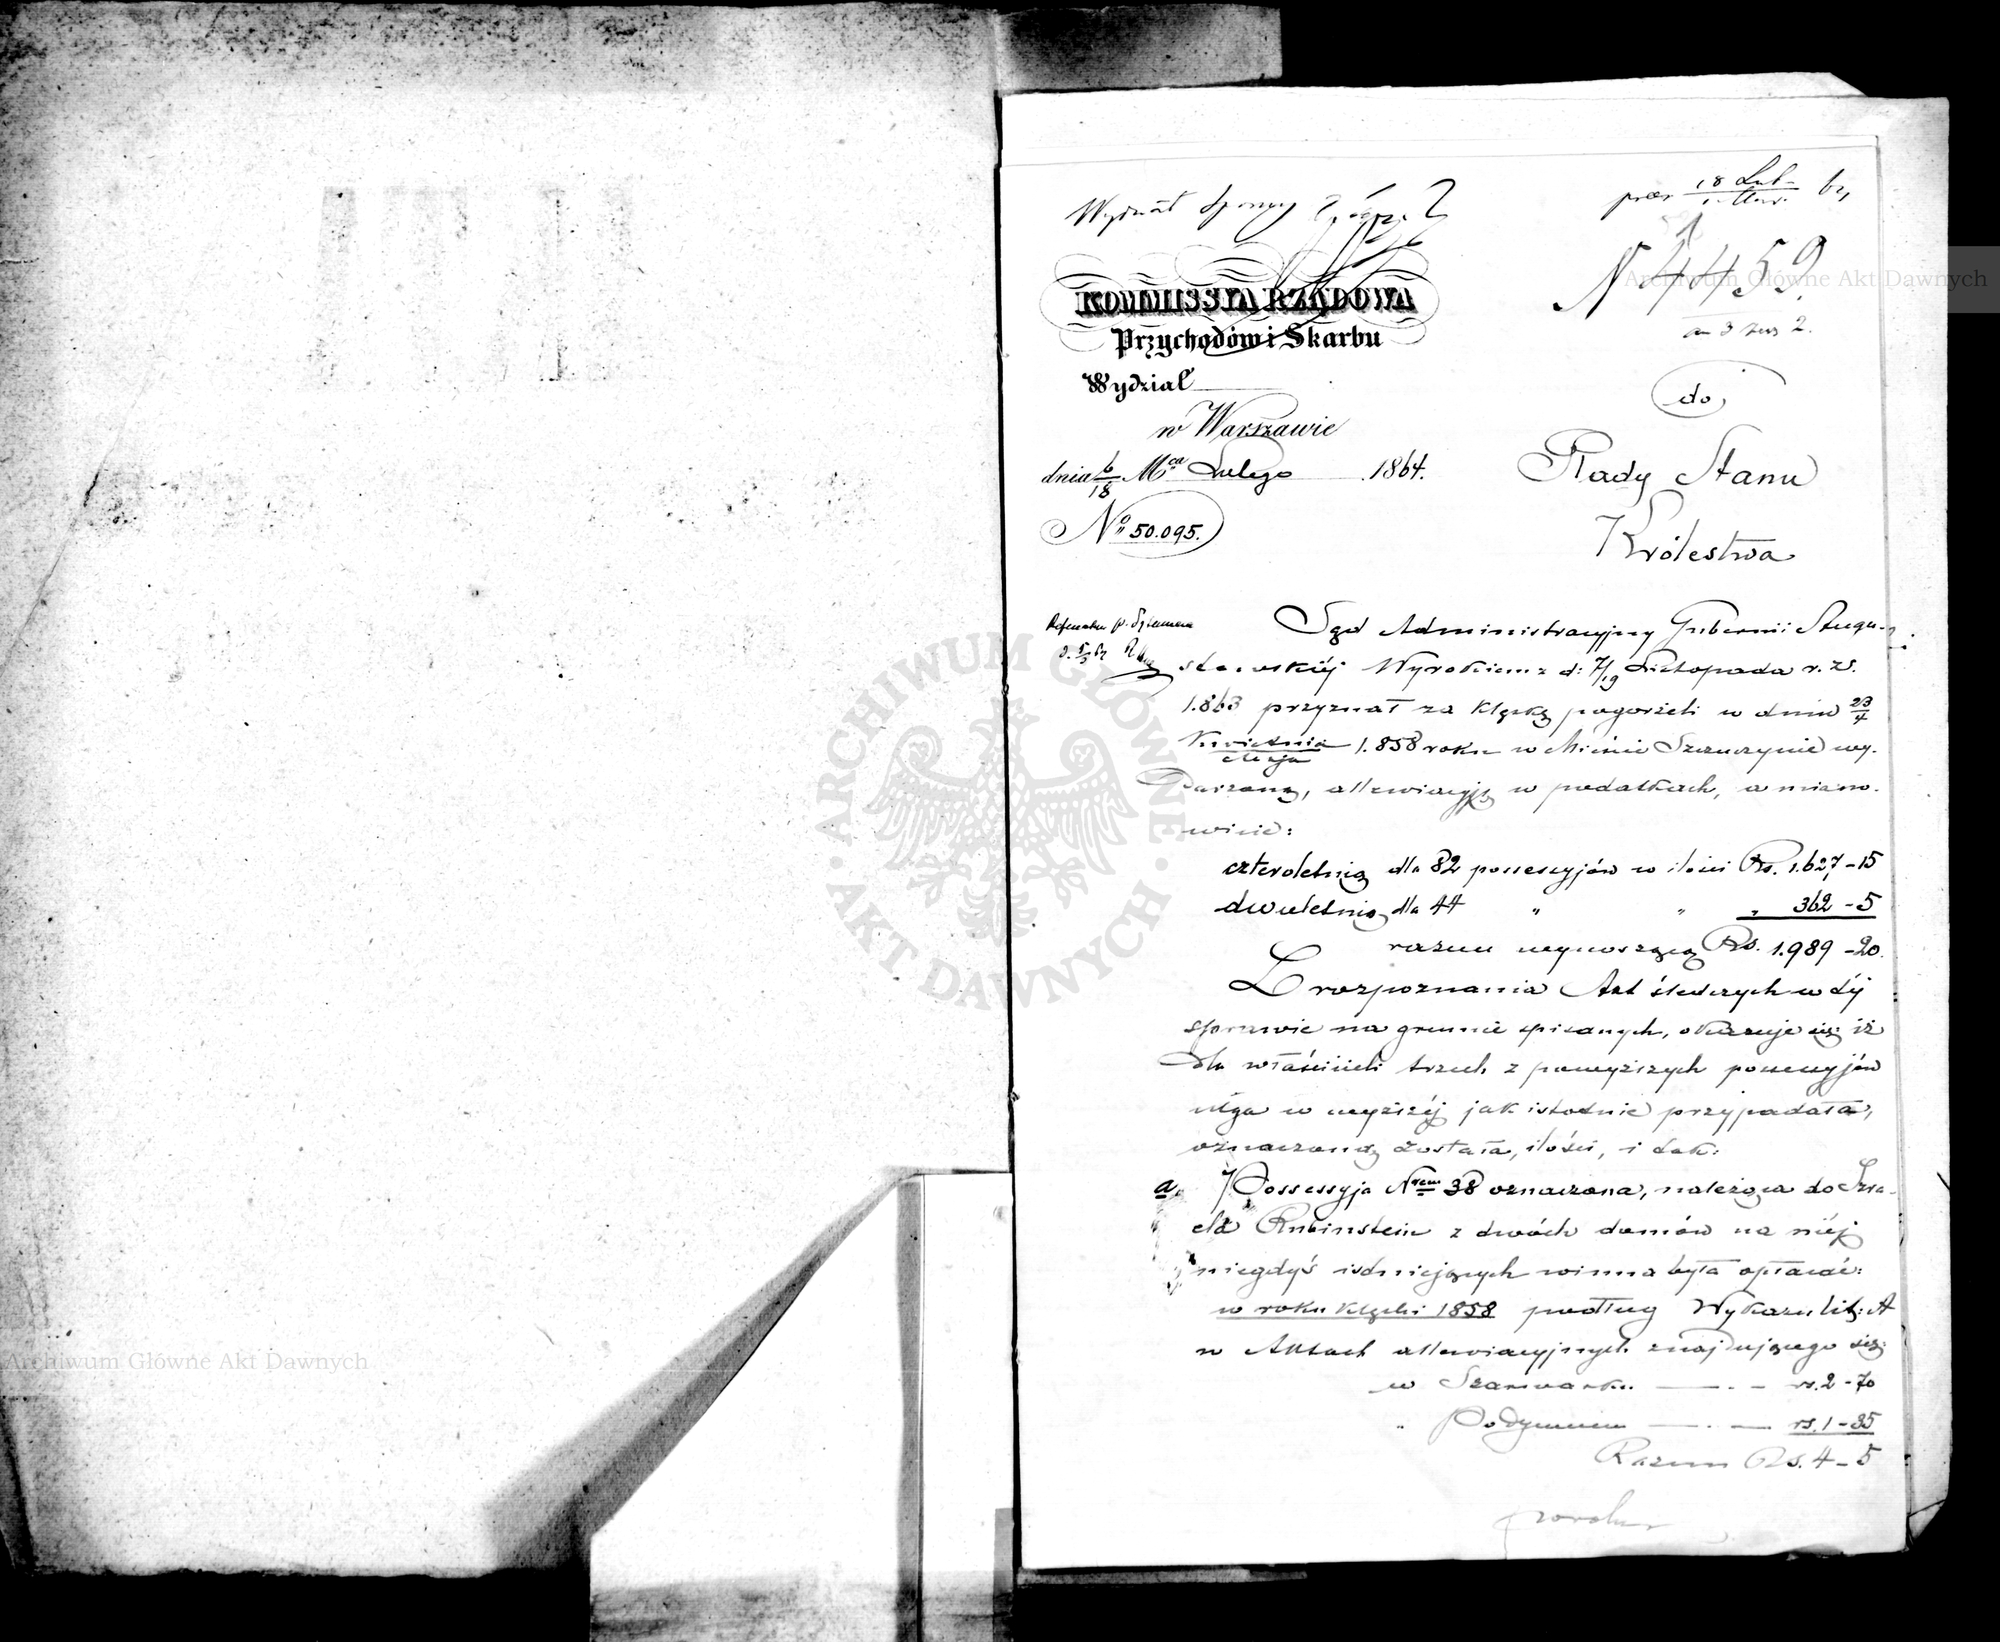 Wydział
18 Lut.
N 4459.
KOMMISSYA RZĄDOWA
Przychodów i Skarbu
Wydział
do
w Warszawie
dnia 6/18 Mca Lutego 1864.
Rady Stanu
No 50.095.
Królestwa
Sąd Administracyjny Gubernii Augu-
stowskiéj Wyrokiem z d: 7/19 Listopada r. z.
1.863 przyznał za klęskę pogorzeli w dniu 23/4
Kwietnia/Maja 1.858 roku w Mieście Szczuczynie wy-
darzoną, allewiacyję w podatkach, a miano-
wicie:
czteroletnią dla 82 possessyjów w ilości Rs. 1.627-15
dwuletnią dla 44 " " " 362-5
razem wynoszącą Rs. 1.989-20.
Z rozpoznania Akt śledczych w téj
sprawie na gruncie spisanych, okazuje się: iż
dla właścicieli trzech z powyższych possessyjów
ulga w wyższéj jak istotnie przypadała,
oznaczoną została, ilości, i tak:
a, Possessyja Nrem 38 oznaczona, należąca do Izra-
ela Rubinstein z dwóch domów na niéj
niegdyś istniejących winna była opłacać:
w roku klęski 1858 podług Wykazu lit: A
w Aktach allewiacyjnych znajdującego się:
w Szarwarku — . — rs. 2-70
" Podymnem — . — rs. 1-35
Razem Rs. 4-5
w roku
Archiwum Główne Akt Dawnych
Archiwum Główne Akt Dawnych
ARCHIWUM GŁÓWNE
AKT DAWNYCH